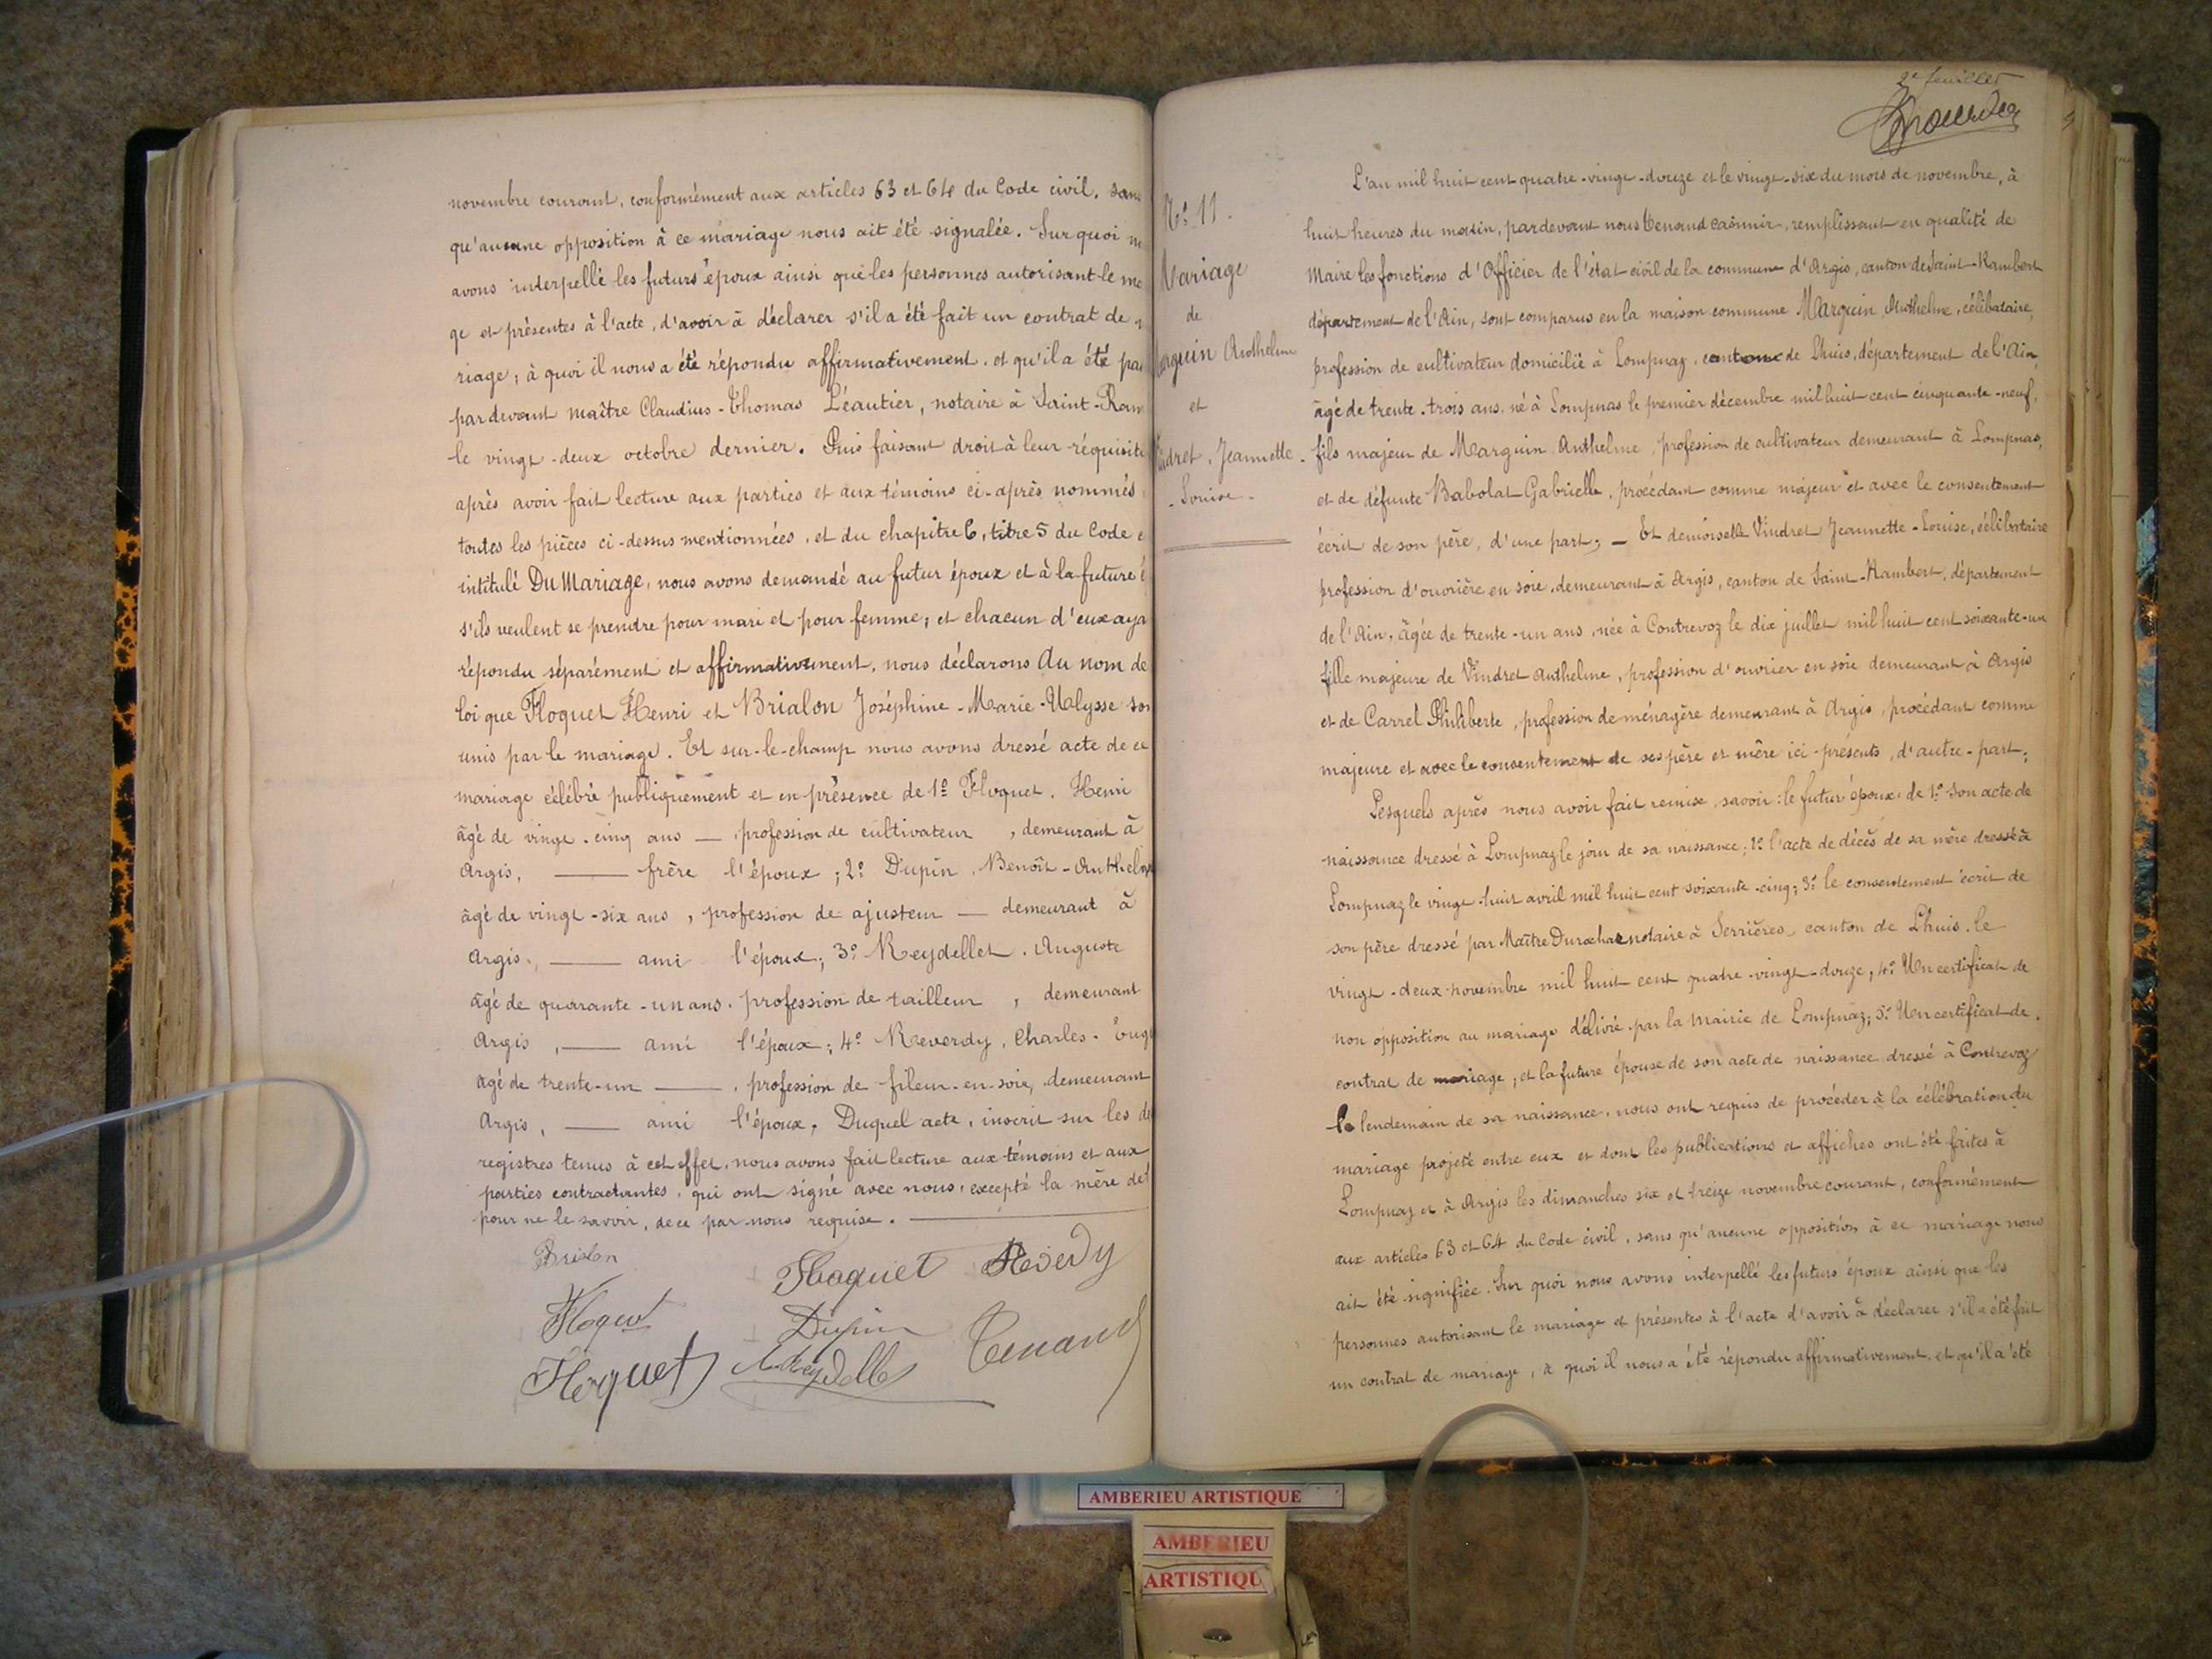 novembre courant, conformément aux articles 63 et 64 du Code civil, sans
qu'aucune opposition à ce mariage nous ait été signalée. Sur quoi
avons interpellé les futurs époux ainsi que les personnes autorisant le
ge et présentes à l'acte, d'avoir à déclarer s'il a été fait un contrat de
riage; à quoi il nous a été répondu affirmativement, et qu'il a été
pardevant maître Claudius-Thomas Léautier, notaire à Saint-Ram
le vingt-deux octobre dernier. Puis faisant droit à leur réquisiti
après avoir fait lecture aux parties et aux témoins ci-après nommés
toutes les pièces ci-dessus mentionnées, et du chapitre 6, titre 5 du Code
intitulé Du Mariage, nous avons demandé au futur époux et à la future
s'ils veulent se prendre pour mari et pour femme; et chacun d'eux aya
répondu séparément et affirmativement, nous déclarons Au nom de
loi que Floquet Henri et Brialon Joséphine-Marie-Ulysse son
unis par le mariage. Et sur-le-champ nous avons dressé acte de ce
mariage célébré publiquement et en présence de 1º Floquet, Henri
âgé de vingt-cinq ans — profession de cultivateur, demeurant à
Argis, — frère l'époux; 2º Dupin, Benoît-Anthelme
âgé de vingt-six ans, profession de ajusteur — demeurant à
Argis, — ami l'époux; 3º Reydellet, Auguste
âgé de quarante-un ans, profession de tailleur, demeurant
Argis, — ami l'époux; 4º Reverdy, Charles-Eug
âgé de trente-un —, profession de fileur-en-soie, demeurant
Argis, — ami l'époux. Duquel acte, inscrit sur les
registres tenus à cet effet, nous avons fait lecture aux témoins et aux
parties contractantes, qui ont signé avec nous, excepté la mère de
pour ne le savoir, de ce par nous requise. —
Brialon
Floquet
Floquet
Dupin
Floquet
Tenand
2e feuillet
Nº 11.
Mariage
de
arguin Anthelme
et
indret, Jeannette-
-Louise-
L'an mil huit cent quatre-vingt-douze et le vingt-six du mois de novembre, à
huit heures du matin, pardevant nous Tenand Casimir, remplissant en qualité de
Maire les fonctions d'Officier de l'état civil de la commune d'Argis, canton de Saint-Rambert
département de l'Ain, sont comparus en la maison commune Marguin Anthelme, célibataire,
profession de cultivateur domicilié à Lompnaz, canton de Lhuis, département de l'Ain,
âgé de trente-trois ans, né à Lompnas le premier décembre mil huit cent cinquante-neuf,
fils majeur de Marguin Anthelme, profession de cultivateur demeurant à Lompnas,
et de défunte Babolat Gabrielle, procédant comme majeur et avec le consentement
écrit de son père, d'une part; — Et demoiselle Vindret Jeannette-Louise, célibataire
profession d'ouvrière en soie, demeurant à Argis, canton de Saint-Rambert, département
de l'Ain, âgée de trente-un ans, née à Contrevoz le dix juillet mil huit cent soixante-un
fille majeure de Vindret Anthelme, profession d'ouvrier en soie demeurant à Argis
et de Carrel Philiberte, profession de ménagère demeurant à Argis, procédant comme
majeure et avec le consentement de ses père et mère ici-présents, d'autre-part;
Lesquels après nous avoir fait remise, savoir: le futur époux de 1º son acte de
naissance dressé à Lompnaz le jour de sa naissance; 2º l'acte de décès de sa mère dressé à
Lompnaz le vingt-huit avril mil huit cent soixante-cinq; 3º le consentement écrit de
son père dressé par Maître notaire à Serrières, canton de Lhuis, le
vingt-deux novembre mil huit cent quatre-vingt-douze; 4º Un certificat de
non opposition au mariage délivré par la Mairie de Lompnaz; 5º Un certificat de
contrat de mariage; et la future épouse de son acte de naissance dressé à Contrevoz
le lendemain de sa naissance, nous ont requis de procéder à la célébration du
mariage projeté entre eux et dont les publications et affiches ont été faites à
Lompnaz et à Argis les dimanches six et treize novembre courant, conformément
aux articles 63 et 64 du Code civil, sans qu'aucune opposition à ce mariage nous
ait été signifiée. Sur quoi nous avons interpellé les futurs époux ainsi que les
personnes autorisant le mariage et présentes à l'acte d'avoir à déclarer s'il a été fait
un contrat de mariage, à quoi il nous a été répondu affirmativement, et qu'il a été
AMBERIEU ARTISTIQUE
AMBERIEU
ARTISTIQU